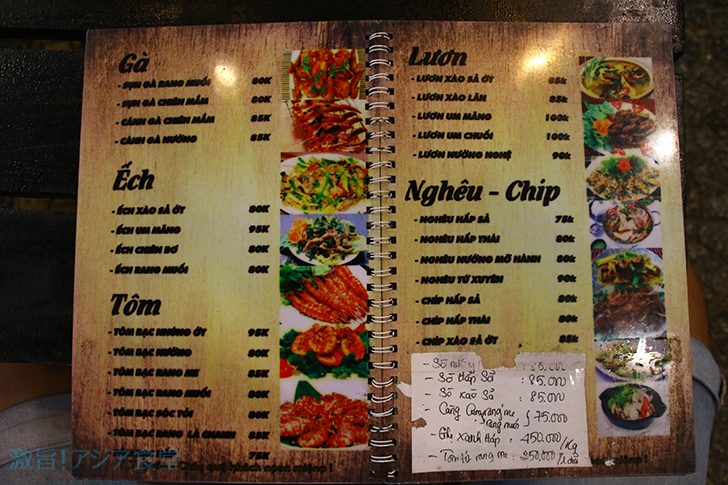 Gà
- SỤN GÀ RANG MUỐI 80K
- SỤN GÀ CHIÊN MẮM 80K
- CÁNH GÀ CHIÊN MẮM 85K
- CÁNH GÀ NƯỚNG 85K
Ếch
- ẾCH XÀO SẢ ỚT 80K
- ẾCH UM MĂNG 95K
- ẾCH CHIÊN BƠ 80K
- ẾCH RANG MUỐI 80K
Tôm
- TÔM BẠC NHÚNG ỚT 95K
- TÔM BẠC NƯỚNG 80K
- TÔM BẠC RANG ME 85K
- TÔM BẠC RANG MUỐI 80K
- TÔM BẠC BÓC TỎI 80K
- TÔM BẠC LÁ CHANH 85K
75K
quí khách ngon miệng !
Lươn
- LƯƠN XÀO SẢ ỚT 85k
- LƯƠN XÀO LĂN 85k
- LƯƠN UM MĂNG 100k
- LƯƠN UM CHUỐI 100k
- LƯƠN NƯỚNG NGHỆ 90k
Nghêu - Chíp
- NGHÊU HẤP SẢ 75k
- NGHÊU HẤP THÁI 80k
- NGHÊU NƯỚNG MỠ HÀNH 80k
- NGHÊU TỨ XUYÊN 90k
- CHÍP HẤP SẢ 80k
- CHÍP HẤP THÁI 80k
- CHÍP XÀO SẢ ỚT 85k
- Sò
- Sò Hấp Sả : 85.000
- Sò Xào Sả : 85.000
- Càng Cúm rang me 75.000
rang muối
- Ghẹ Xanh Hấp : 450.000/Kg
- Tôm tít rang me : 250.000/1 dĩa
ngon miệng !
激旨!アジア食堂